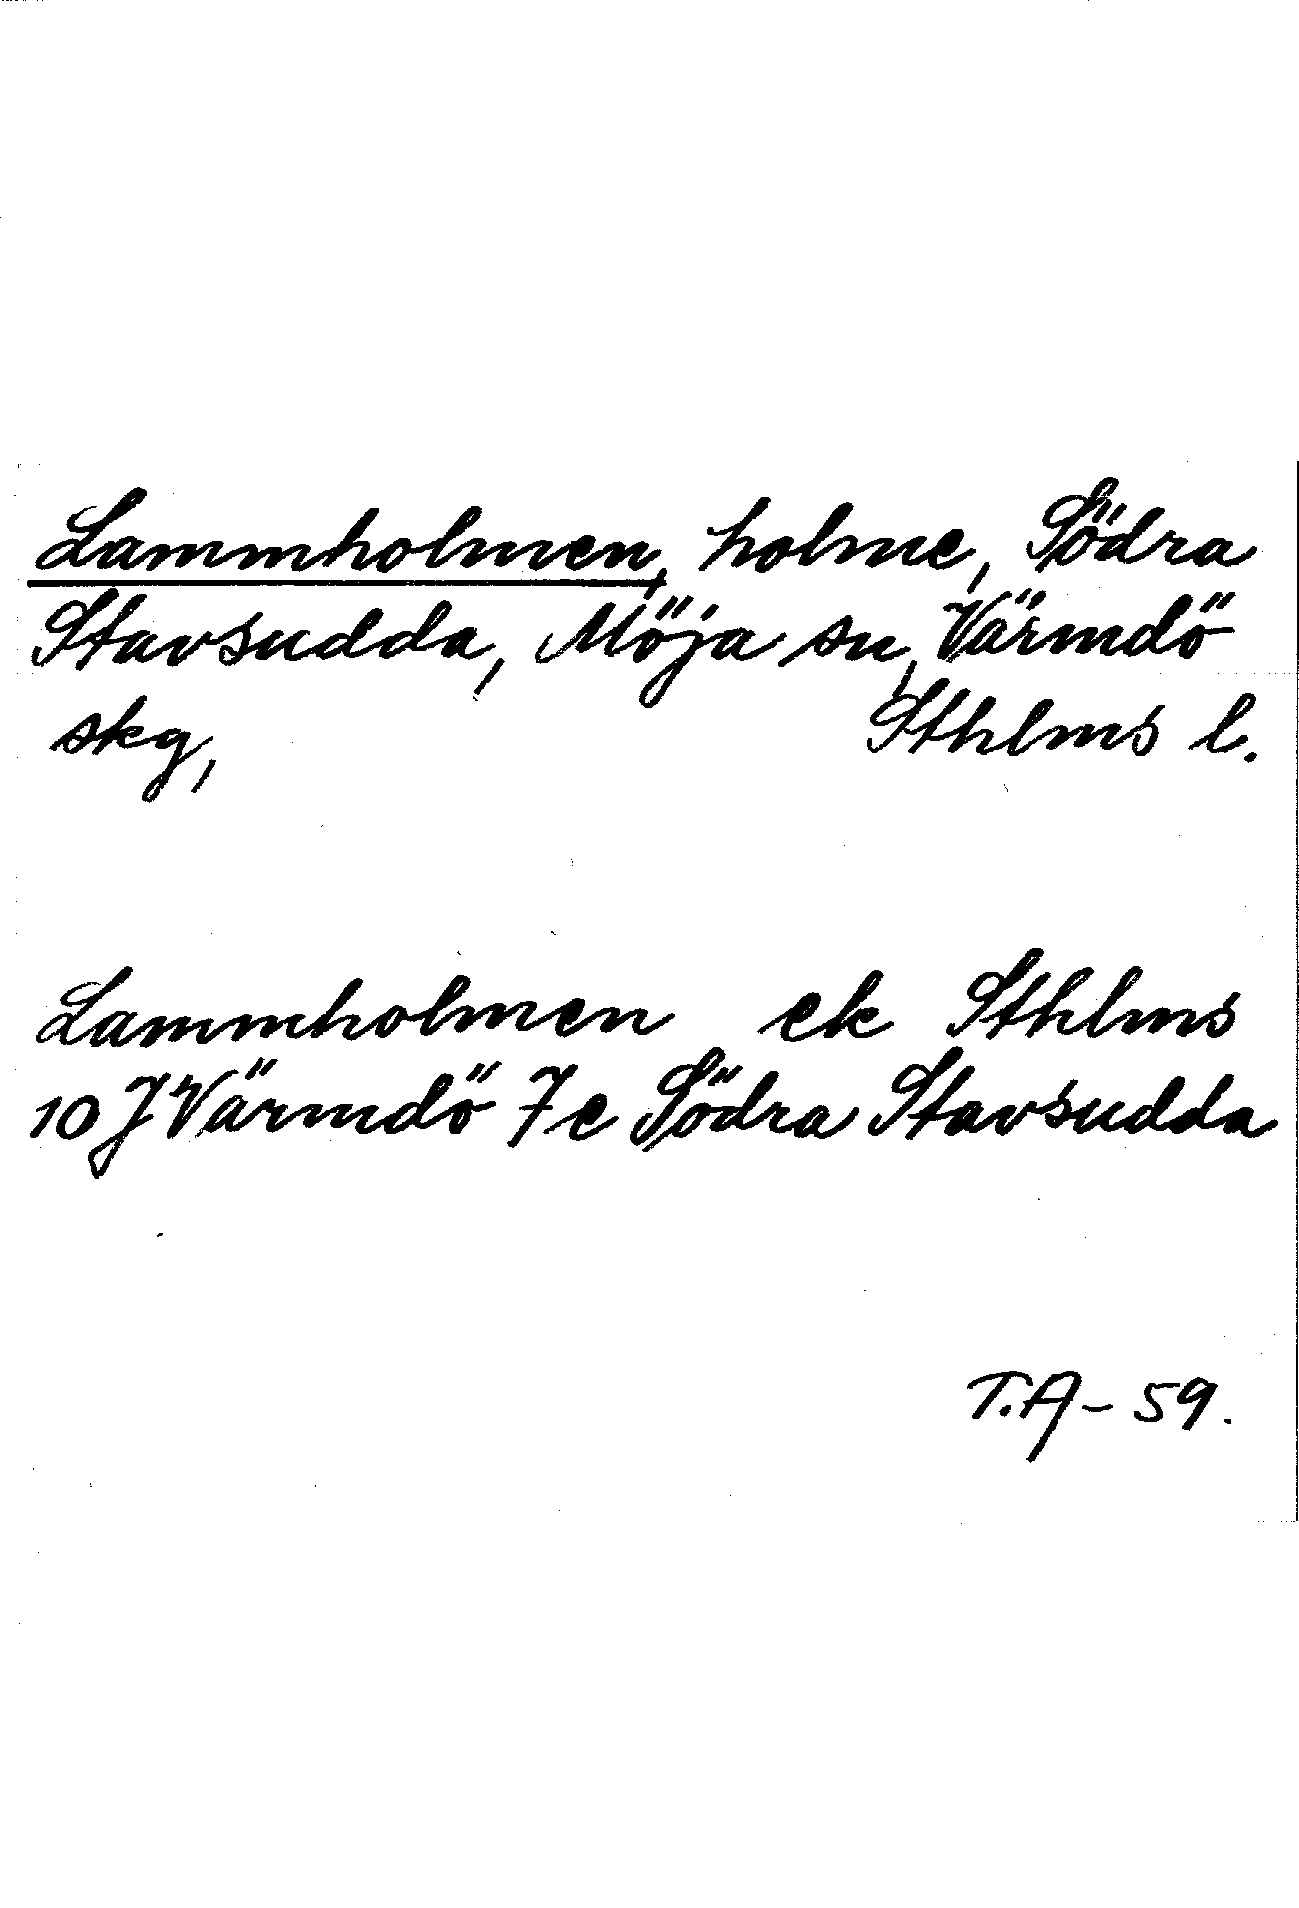 Lammholmen, holme, Södra
Stavsudda, Möja sn, Värmdö
skg, Sthlms l.
Lammholmen ek Sthlms
10 J Värmdö 7e Södra Stavsudda
T.A - 59.